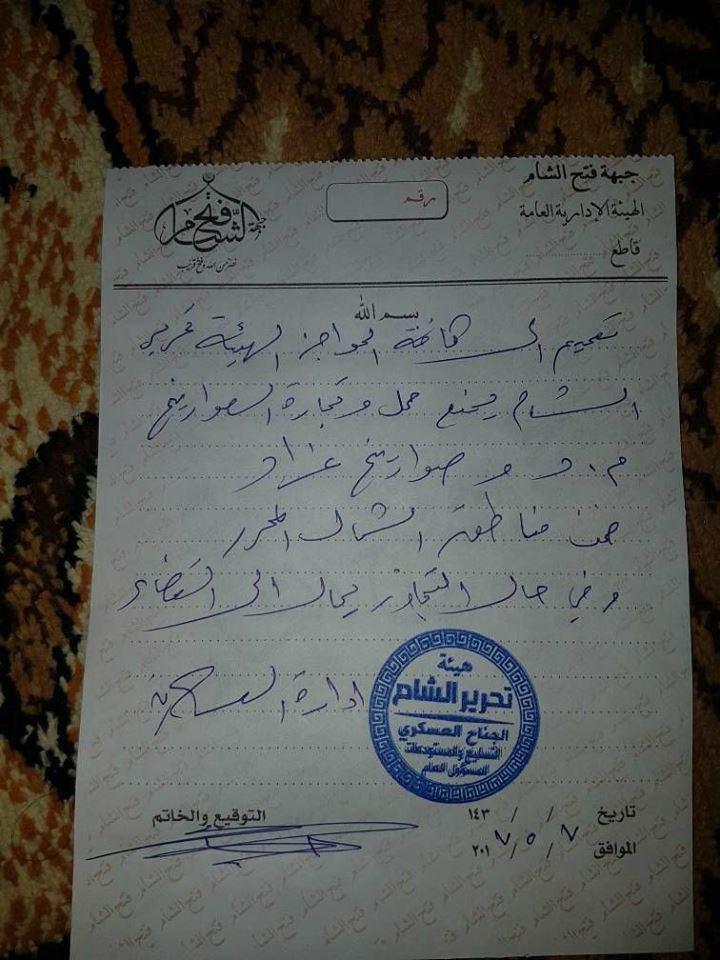 جبهة فتح الشام
الهيئة الإدارية العامة
قاطع
رقم
جبهة فتح الشام
نصر من الله وفتح قريب
بسم الله
تعميم الى كافة الحواجز الهيئة تحرير
الشام يمنع حمل وتجارة الصواريخ
م.د وصواريخ غراد
ضمن مناطق الشمال المحرر
وفي حال التجاوز يحال الى القضاء
ادارة
هيئة
تحرير الشام
الجناح العسكري
التسليح والمستودعات
المسؤول العام
تاريخ / / ١٤٣
الموافق ٧ / ٥ / ٢٠١٧
التوقيع والخاتم